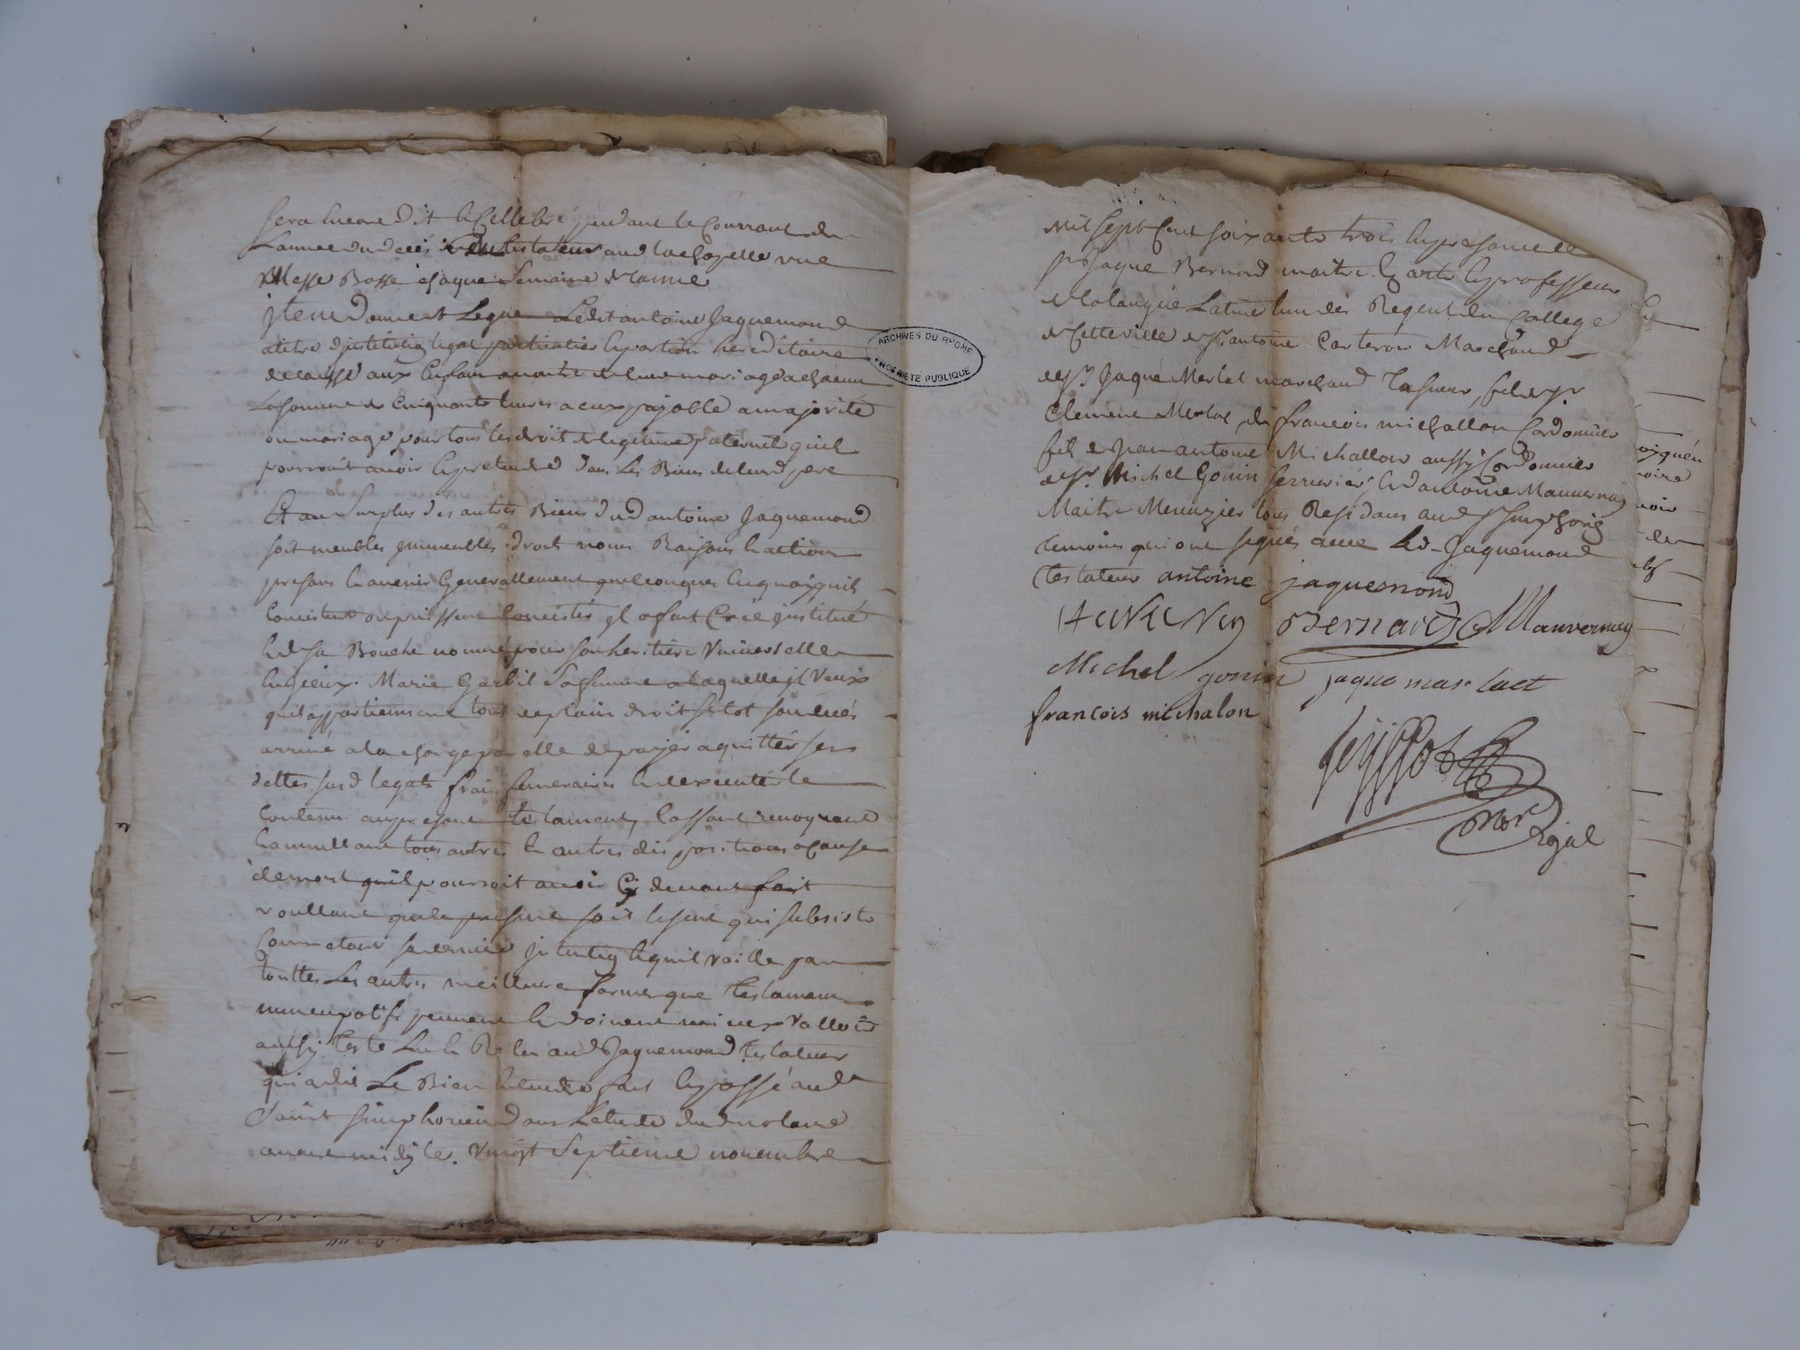 sera encore dit et cellebré pendant le Courrant de
L'année du décès dud testateur aud la chapelle une
Messe Basse chaque semaine de l'année
jtem donne et Legue Ledit antoine Jaquemond
atitre d'jnstitution légat particulier et portion hereditaire
delaissé aux Enfans a naitre de leur mariage a chacun
La somme de Cinquante livres a eux payable a majorité
ou mariage pour tous les droit de legitime paternel quil
pourroit avoir et pretendre dans Les Biens de leurd pere
Et au surplus des autres Biens dud antoine Jaquemond
soit meubles jmmeubles droits noms Raisons et actions
presans et avenir Generallement quelconques en quoy quil
Consistent ou puissent Consister jl a fait Créé jnstitué
et de sa Bouche nommé pour son heritiere Universelle
Marie Garbil sa femme a laquelle jl Veux
quil appartiennent tout de plain droit sitot son décés
arrivé a la charge par elle de payér aquittér ses
dettes susd legats frais funeraires et dexecuter le
Contenu au present testament, Cassant revoquant
et annullant tous autres et autres dispositions a Cause
demort quil pourroit avoir Cy devant fait
voullant que le presant soit le seul qui subsiste
Comme etant sa derniere jntention et quil vaille par
touttes Les autres meilleure formes que testament
nuncupatif peuvent et doivent mieux Valloir
ainsy testé Lu et Relu aud Jaquemond testateur
qui a dit Le Bien entendre fait et passé aud
Saint simphorien dans Letude dud notaire
avant midy le vingt septieme novembre
ARCHIVES DU RHONE
PROPRIETE PUBLIQUE
Mil sept Cent soixante trois En presance de
sr Jaque Bernard maitre Es arts et professeur
de la langue Latine l'un des Regent du College
de Cette ville de sr antoine Carteron Marchand
de sr Jaque Merlat marchand fils de sr
Clement Merlat, de françois michallon Cordonnier
fils de Jean antoine Michallon aussy Cordonnier
de sr Michel Gonin serrurier, et d'antoine Mauvernay
Maitre Menuzier tous Residans aud st simphorien
temoins qui ont signés avec Led Jaquemond
testateur antoine jaquemond
Bernard Mauvernay
Michel gonin jaque marlaet
francois michalon